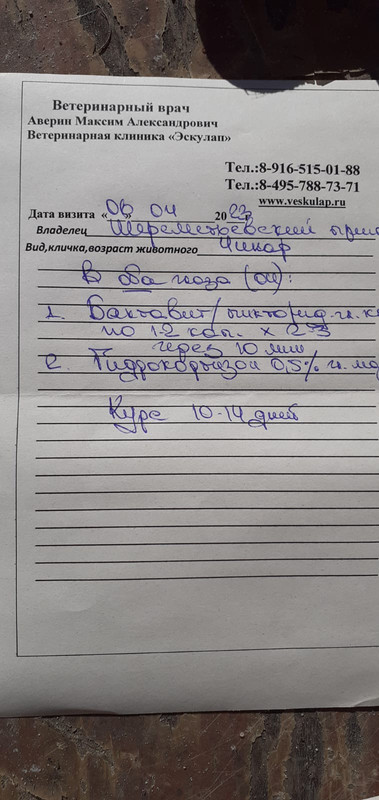 Ветеринарный врач
Аверин Максим Александрович
Ветеринарная клиника «Эскулап»
Тел.:8-916-515-01-88
Тел.:8-495-788-73-71
www.veskulap.ru
Дата визита «06» 04 2023г
Владелец Шереметьевский прию
Вид,кличка,возраст животного Чикор
В оба глаза (OU):
1. Бактавит/ гл. к
по 1-2 кап. х 2-3
через 10 мин
2. Гидрокортизон 0,5% гл. ма
Курс 10-14 дней